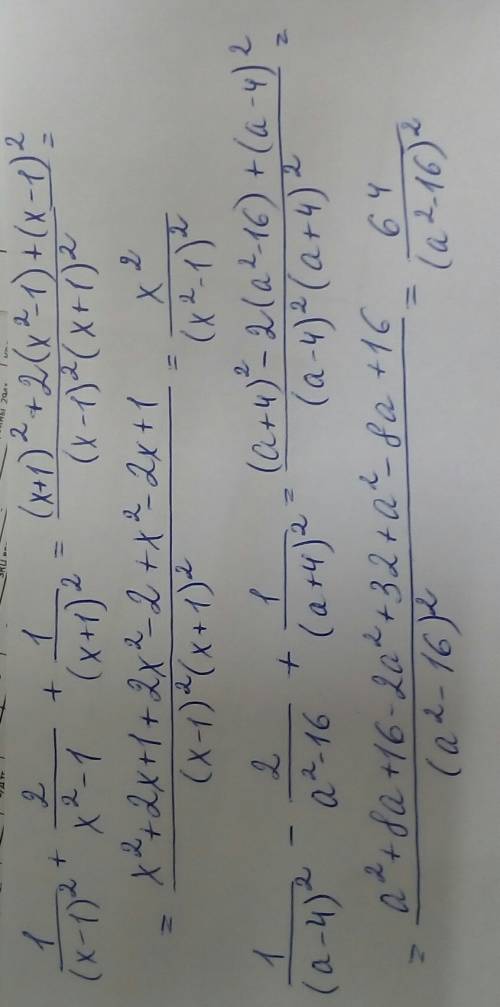 1/(x-1)² + 2/(x²-1) + 1/(x+1)² = ((x+1)² + 2(x²-1) + (x-1)²)/((x-1)²(x+1)²) =
= (x²+2x+1+2x²-2+x²-2x+1)/((x-1)²(x+1)²) = x²/(x²-1)²
1/(a-4)² - 2/(a²-16) + 1/(a+4)² = ((a+4)² - 2(a²-16) + (a-4)²)/((a-4)²(a+4)²) =
= (a²+8a+16-2a²+32+a²-8a+16)/(a²-16)² = 64/(a²-16)²